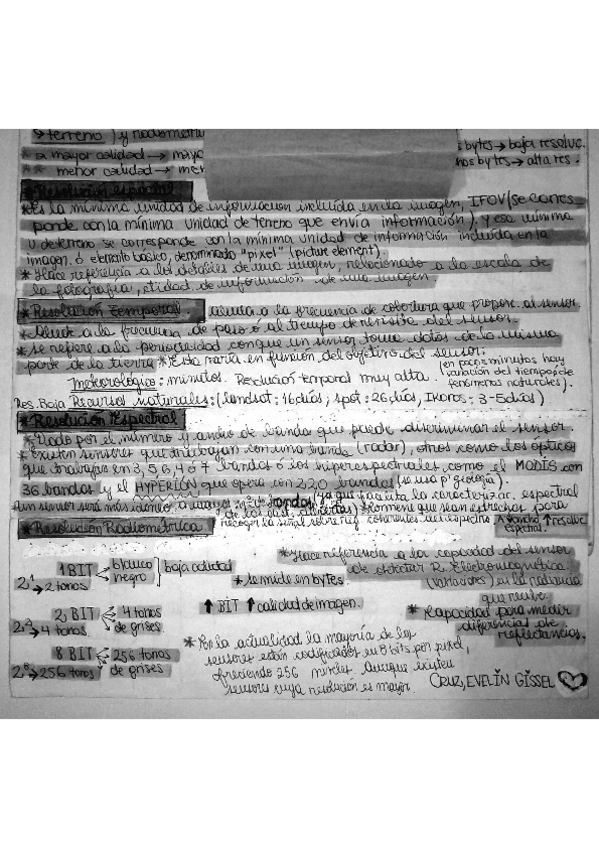 → terreno) y radiometría
s bytes → baja resoluc.
* a mayor calidad → mayo
nos bytes → alta res.
* * menor calidad → men
* Resolución espacial
* Es la mínima unidad de información incluida en la imagen, IFOV (se corres
ponde con la mínima unidad de terreno que envía información), y esa mínima
U de terreno se corresponde con la mínima unidad de información incluida en la
imagen. ó elemento básico, denominado "pixel" (picture element).
* Hace referencia a los detalles de una imagen, relacionado a la escala de
la fotografía, ctidad de información de una imagen.
* Resolución Temporal. a la frecuencia de cobertura que propone el sensor.
* Alude a la frecuencia de paso o al tiempo de revisita del sensor.
* se refiere a la periocidad con que un sensor toma datos de la misma
parte de la tierra * Esta varía en función del objetivo del sensor:
(en pocos minutos hay
Meteorológico: minutos. Resolución temporal muy alta.
variación del tiempo de
fenómenos naturales).
Res. Baja Recursos naturales: (landsat: 16 días, spot: 26 días, Ikonos: 3-5 días)
* Resolución Espectral
* Dado por el número y ancho de banda que puede discriminar el sensor.
* Existen sensores que trabajan con una banda (radar), otros como los ópticos
que trabajan en 3, 5, 6, 4 ó 7 bandas ó los hiperespectrales, como el MODIS con
36 bandas y el HYPERIÓN que opera con 220 bandas (se usa p' geología).
Un sensor será más idóneo a mayor nº de bandas (ya que facilita la caracterizac. espectral
de las cub.) * Conviene que sean estrechos para
* Resolución Radiométrica
recoger la señal sobre reg. coherentes del espectro
↑ resoluc.
espectral.
* Hace referencia a la capacidad del sensor
de detectar R. Electromagnética.
(variaciones) en la radiancia
que recibe.
1 BIT blanco negro baja calidad
2¹ → 2 tonos
* se mide en bytes.
2 BIT 4 tonos de grises.
2² → 4 tonos.
↑ BIT ↑ calidad de imagen.
* Capacidad para medir
diferencias de
reflectancias.
8 BIT 256 tonos de grises
2⁸ → 256 tonos
* En la actualidad la mayoría de los
sensores están codificados en 8 bits por pixel,
ofreciendo 256 niveles aunque existen
sensores cuya resolución es mayor.
CRUZ, EVELIN GISSEL